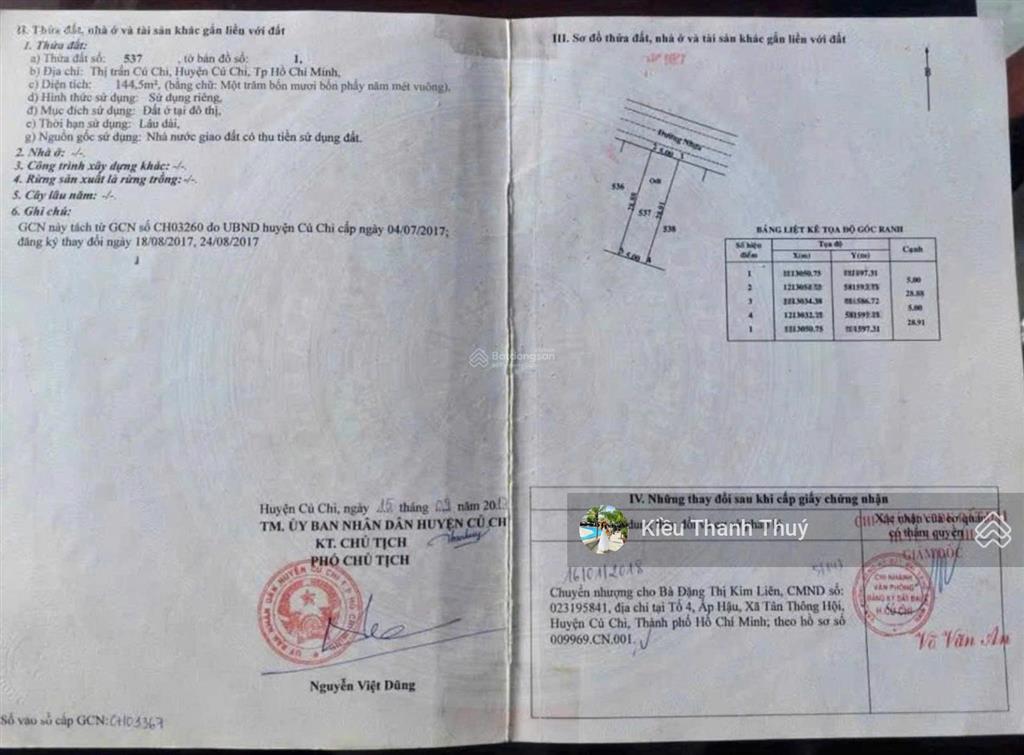 II. Thửa đất, nhà ở và tài sản khác gắn liền với đất
1. Thửa đất:
a) Thửa đất số: 537 , tờ bản đồ số: 1,
b) Địa chỉ: Thị trấn Củ Chi, Huyện Củ Chi, Tp Hồ Chí Minh,
c) Diện tích: 144,5m², (bằng chữ: Một trăm bốn mươi bốn phẩy năm mét vuông),
d) Hình thức sử dụng: Sử dụng riêng,
đ) Mục đích sử dụng: Đất ở tại đô thị,
e) Thời hạn sử dụng: Lâu dài,
g) Nguồn gốc sử dụng: Nhà nước giao đất có thu tiền sử dụng đất.
2. Nhà ở: -/-.
3. Công trình xây dựng khác: -/-.
4. Rừng sản xuất là rừng trồng: -/-.
5. Cây lâu năm: -/-.
6. Ghi chú:
GCN này tách từ GCN số CH03260 do UBND huyện Củ Chi cấp ngày 04/07/2017;
đăng ký thay đổi ngày 18/08/2017, 24/08/2017
Huyện Củ Chi, ngày 15 tháng 09 năm 2017
TM. ỦY BAN NHÂN DÂN HUYỆN CỦ CHI
KT. CHỦ TỊCH
PHÓ CHỦ TỊCH
Nguyễn Việt Dũng
Số vào sổ cấp GCN: CH03367
III. Sơ đồ thửa đất, nhà ở và tài sản khác gắn liền với đất
B
Đường Nhựa
2 5.00 1
536
Odt
28.88
537
28.91
538
3 5.00 4
BẢNG LIỆT KÊ TỌA ĐỘ GÓC RANH
Số hiệu điểm Tọa độ Cạnh
X(m) Y(m)
1
5.00
2
28.88
3
5.00
4
28.91
1
Batdongsan
IV. Những thay đổi sau khi cấp giấy chứng nhận
Xác nhận của cơ quan
có thẩm quyền
Kiều Thanh Thuý
GIÁM ĐỐC
16/01/2018
Chuyển nhượng cho Bà Đặng Thị Kim Liên, CMND số:
023195841, địa chỉ tại Tổ 4, Ấp Hậu, Xã Tân Thông Hội,
Huyện Củ Chi, Thành phố Hồ Chí Minh; theo hồ sơ số
009969.CN.001.
CHI NHÁNH
VĂN PHÒNG
ĐĂNG KÝ ĐẤT ĐAI
H.CỦ CHI
Võ Văn An